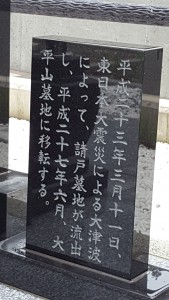 平成二十三年三月十一日、
東日本大震災による大津波
によって、請戸墓地が流出
し、平成二十七年六月、大
平山墓地に移転する。